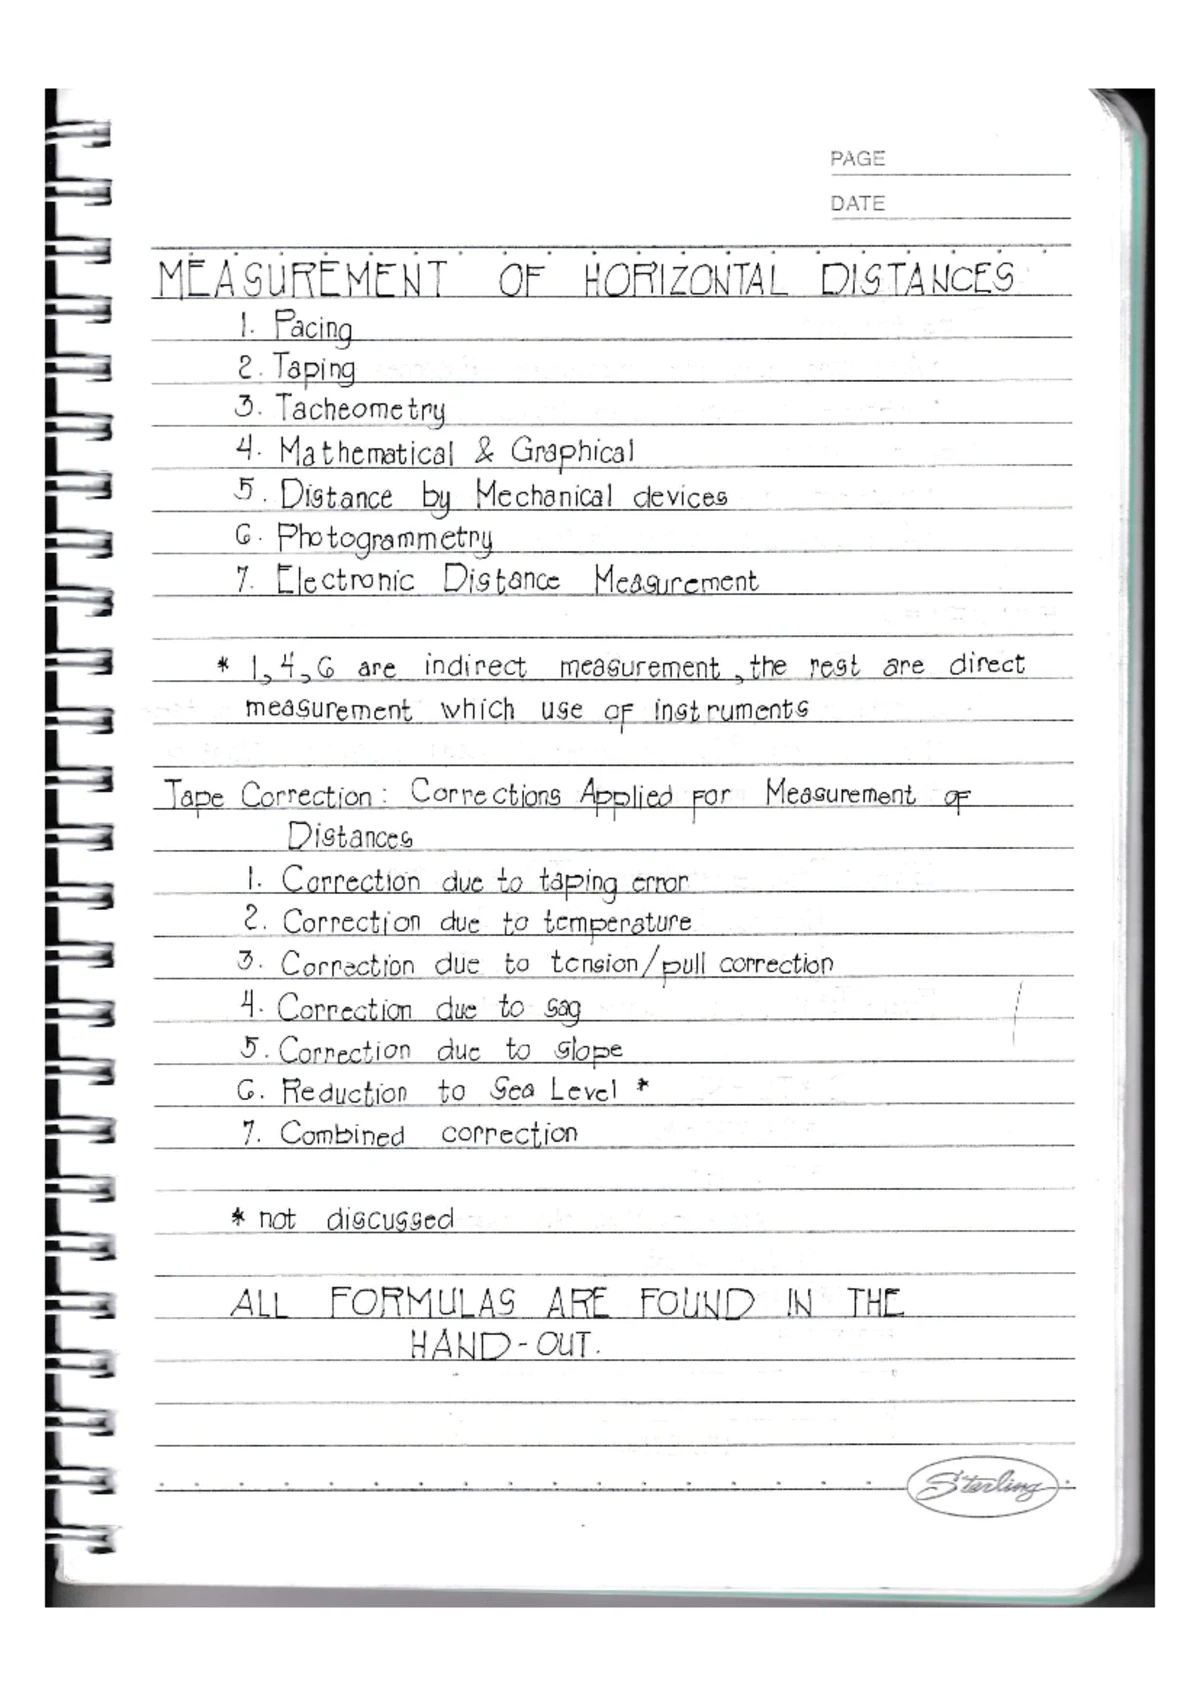 PAGE
DATE
MEASUREMENT OF HORIZONTAL DISTANCES
1. Pacing
2. Taping
3. Tacheometry
4. Mathematical & Graphical
5. Distance by Mechanical devices
6. Photogrammetry
7. Electronic Distance Measurement
* 1,4,6 are indirect measurement, the rest are direct
measurement which use of instruments
Tape Correction: Corrections Applied for Measurement of
Distances
1. Correction due to taping error
2. Correction due to temperature
3. Correction due to tension/pull correction
4. Correction due to sag
5. Correction due to slope
6. Reduction to Sea Level *
7. Combined correction
* not discussed
ALL FORMULAS ARE FOUND IN THE
HAND-OUT.
Sterling